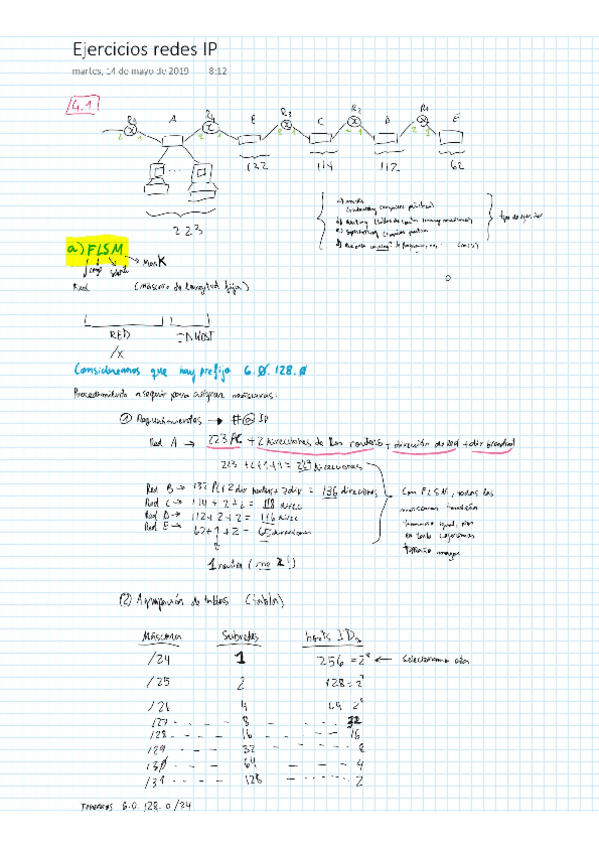 Ejercicios redes IP
martes, 14 de mayo de 2019 8:12
4.1
R5 A R4 B R3 C R2 D R1 E
2 1 2 1 2 1 2 1 2 1
132 114 112 62
223
tipo de ejercicios
a) FLSM
Mask
Red (máscara de longitud fija)
RED HOST
/X
Consideramos que hay prefijo 6.0.128.0
Procedimiento a seguir para asignar máscaras:
① Requerimientos → #@IP
Red A → 223 PC + 2 direcciones de los routers + dirección de red + dir broadcast
direcciones
Red B → 132 PC + 2 dir routers + 2 dir = 136 direcciones
Red C → 114 + 2 + 2 = 118 direc
Red D → 112 + 2 + 2 = 116 direc
Red E → 62 + 1 + 2 = 65 direcciones
Con FLSM, todas las
máscaras tendrán
tamaño igual, por
lo tanto cogeremos
tamaño mayor
1 router (no 2!)
(2) Agrupación de tablas (tabla)
Máscara Subredes hosts IDs
/24 1 256 = 2⁸ ← Seleccionamos esta
/25 2 128 = 2⁷
/26 4 64 2⁶
/27 - - - 8 - - - 32
/28 - - - 16 - - - 16
/29 - - - 32 - - - 8
/30 - - - 64 - - - 4
/31 - - - 128 - - - 2
Tenemos 6.0.128.0/24